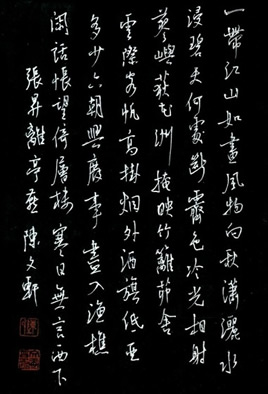 一帶江山如畫風物向秋瀟灑水
浸碧天何處斷霽色冷光相射
蓼嶼荻花洲掩映竹籬茆舍
雲際客帆高掛烟外酒旗低亞
多少六朝興廢事盡入漁樵
閑話悵望倚層樓寒日無言西下
張昇離亭燕 陳文軒